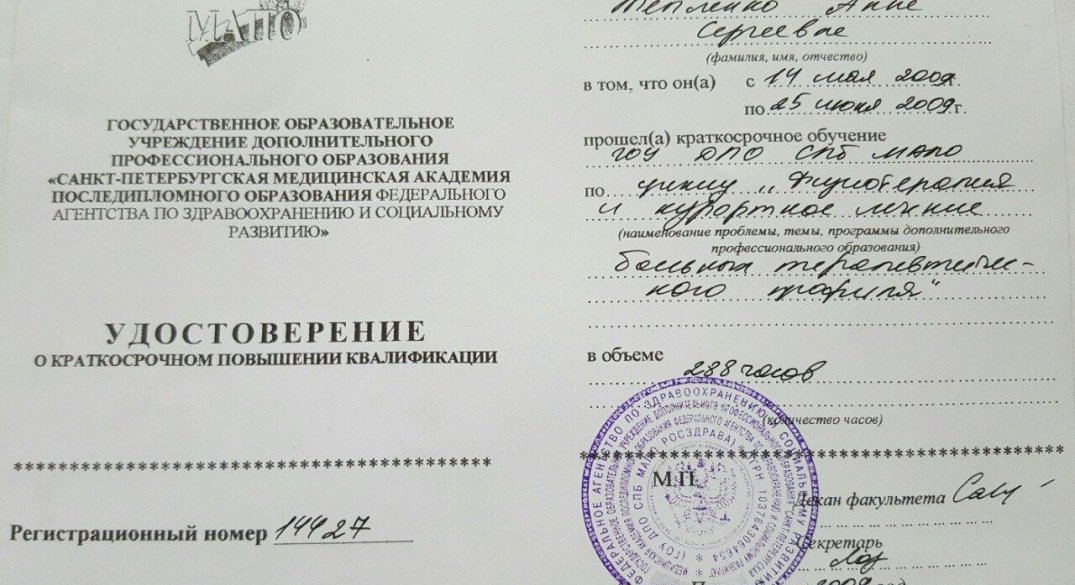 МАПО
ГОСУДАРСТВЕННОЕ ОБРАЗОВАТЕЛЬНОЕ
УЧРЕЖДЕНИЕ ДОПОЛНИТЕЛЬНОГО
ПРОФЕССИОНАЛЬНОГО ОБРАЗОВАНИЯ
«САНКТ-ПЕТЕРБУРГСКАЯ МЕДИЦИНСКАЯ АКАДЕМИЯ
ПОСЛЕДИПЛОМНОГО ОБРАЗОВАНИЯ ФЕДЕРАЛЬНОГО
АГЕНТСТВА ПО ЗДРАВООХРАНЕНИЮ И СОЦИАЛЬНОМУ
РАЗВИТИЮ»
УДОСТОВЕРЕНИЕ
О КРАТКОСРОЧНОМ ПОВЫШЕНИИ КВАЛИФИКАЦИИ
************************************
Регистрационный номер 14427
Анне
Сергеевне
(фамилия, имя, отчество)
в том, что он(а) с 14 мая 2009
по 25 июня 2009 г.
прошел(а) краткосрочное обучение
ГОУ ДПО СПб МАПО
по циклу „Физиотерапия
и курортное лечение
(наименование проблемы, темы, программы дополнительного
профессионального образования)
больных терапевтиче-
ского профиля"
в объеме
288 часов
(количество часов)
************************************
М.П.
Декан факультета
Секретарь
2009